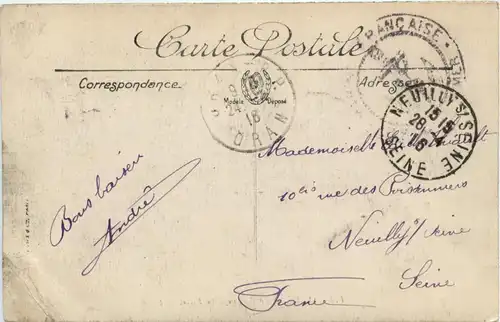 Carte Postale
Correspondance
Adresse
Modèle Déposé
ORAN
16
RANÇAISE
NEUILLY S/ SEINE
15 15
28
16
SEINE
Mademoiselle
10 bis rue des Poissonniers
Neuilly s/ Seine
Seine
France
Bons baisers
André